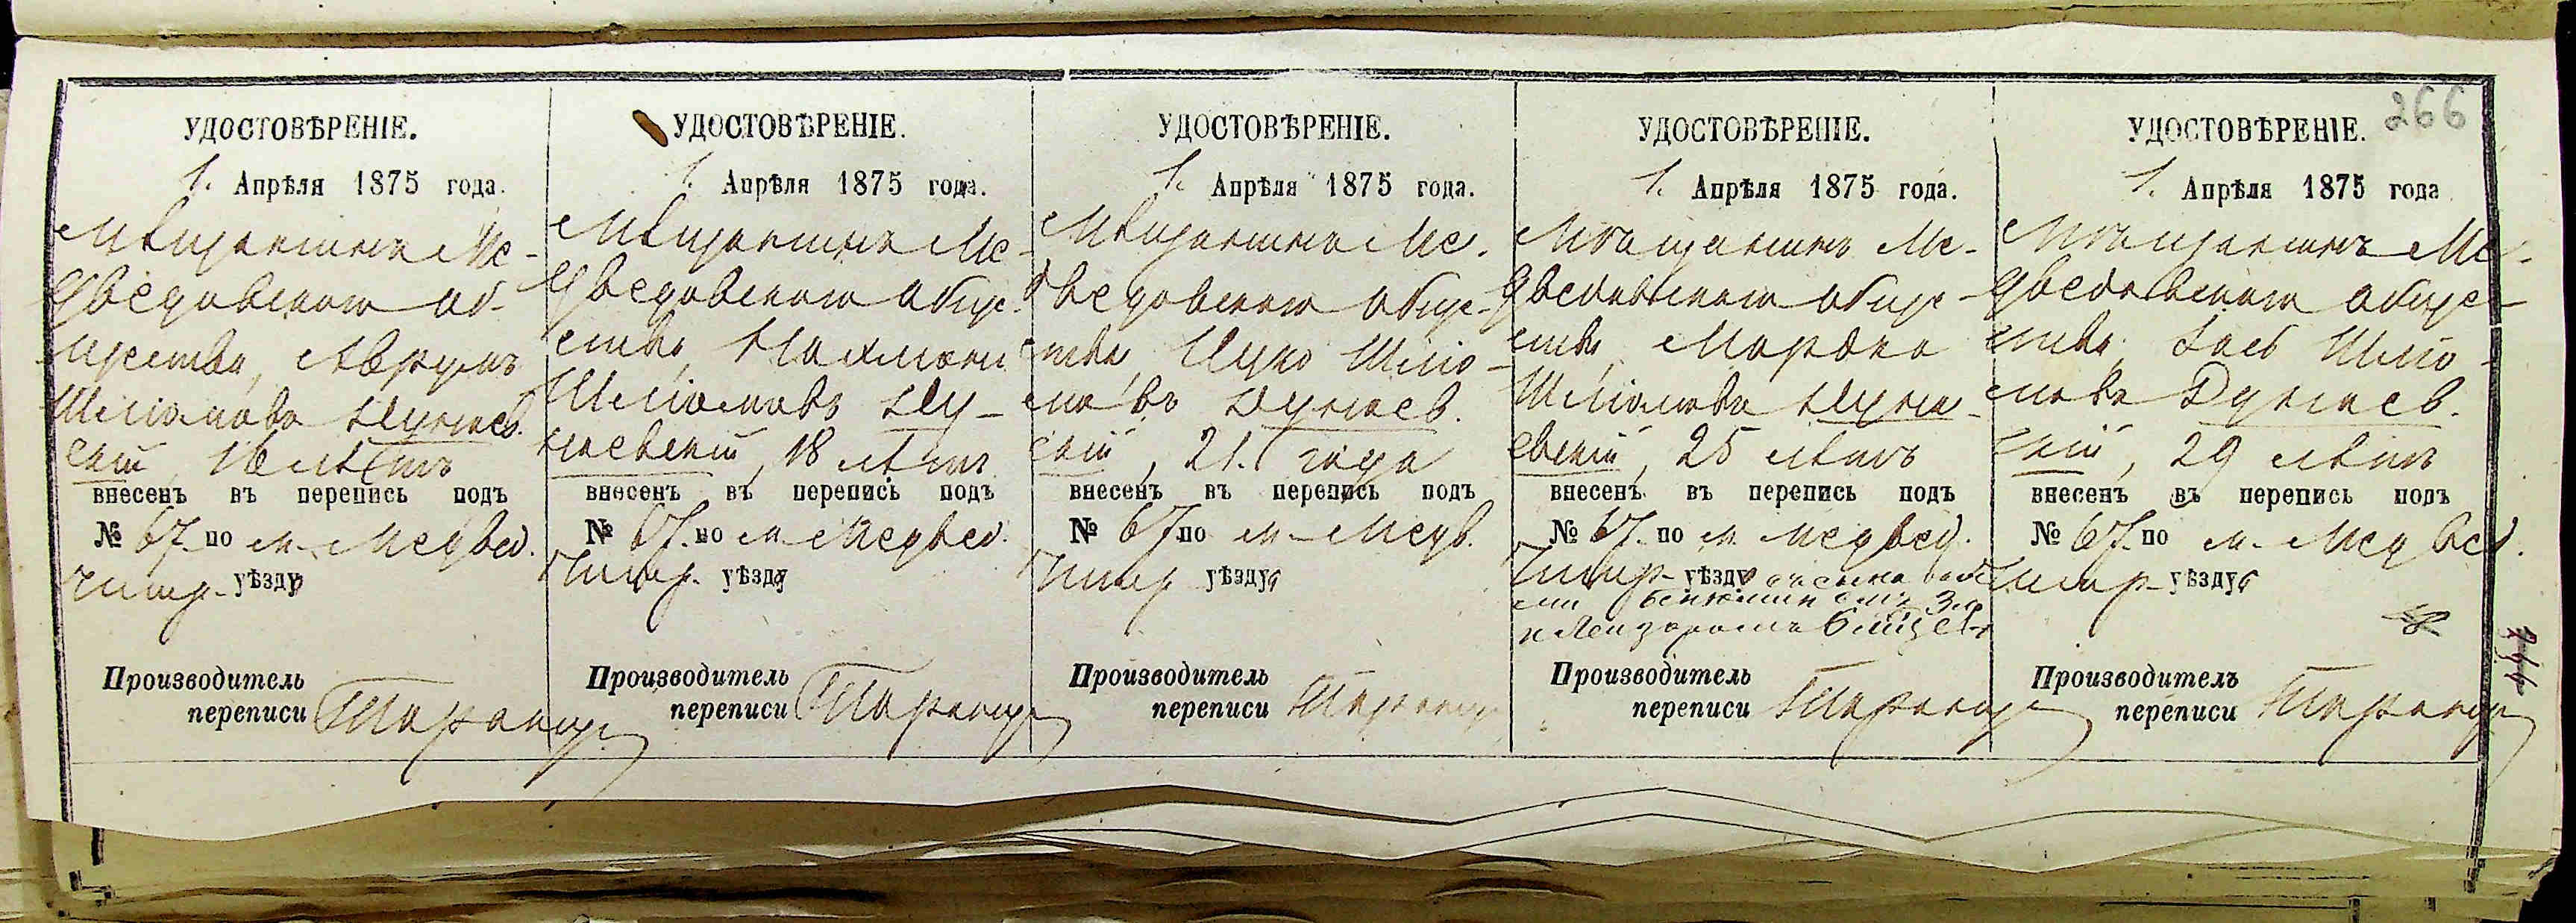 266
УДОСТОВѢРЕНІЕ.
1. Апрѣля 1875 года.
Мѣщанинъ Ме-
дведовскаго об-
щества,
Шліомовъ Дунаев.
скій, лѣтъ
внесенъ въ перепись подъ
№ 67. по м. Медвед.
Чигир. уѣзду
Производитель
переписи
УДОСТОВѢРЕНІЕ.
1. Апрѣля 1875 года.
Мѣщанинъ Ме-
дведовскаго обще-
ства, Нахманъ
Шліомовъ Ду-
наевскій, 18 лѣтъ
внесенъ въ перепись подъ
№ 67. по м. Медвед.
Чигир. уѣзду
Производитель
переписи
УДОСТОВѢРЕНІЕ.
1. Апрѣля 1875 года.
Мѣщанинъ Ме-
дведовскаго обще-
ства, Шліо-
мовъ Дунаев.
скій, 21. года
внесенъ въ перепись подъ
№ 67. по м. Медв.
Чигир уѣзду
Производитель
переписи
УДОСТОВѢРЕНІЕ.
1. Апрѣля 1875 года.
Мѣщанинъ Ме-
дведовскаго обще-
ства, Мордко
Шліомовъ Дуна-
евскій, 25 лѣтъ
внесенъ въ перепись подъ
№ 67. по м. Медвед.
Чигир. уѣзду
Производитель
переписи
УДОСТОВѢРЕНІЕ.
1. Апрѣля 1875 года
Мѣщанинъ Ме-
дведовскаго обще-
ства, Шліо-
мовъ Дунаев.
скій, 29 лѣтъ
внесенъ въ перепись подъ
№ 67. по м. Медвед.
Чигир. уѣзду
Производитель
переписи